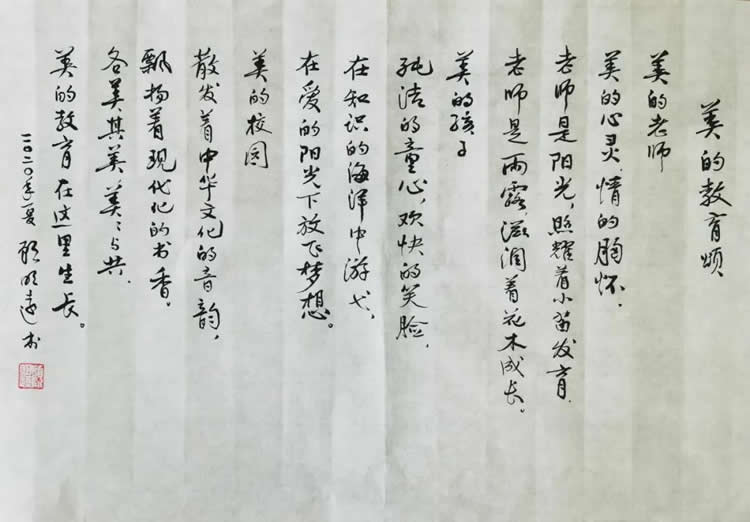 美的教育颂
美的老师
美的心灵,情的胸怀.
老师是阳光,照耀着小苗发育.
老师是雨露,滋润着花木成长。
美的孩子
纯洁的童心,欢快的笑脸,
在知识的海洋中游弋,
在爱的阳光下放飞梦想。
美的校园
散发着中华文化的音韵,
飘扬着现代化的书香。
各美其美美美与共.
美的教育在这里生长。
二〇二〇年夏 顾明远 书